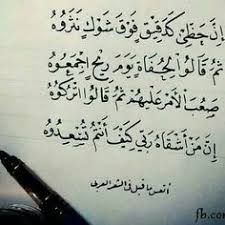 إن حظي كدقيق فوق شوك نثروه
ثم قالوا لحفاة يوم ريح اجمعوه
صعب الأمر عليهم ثم قالوا اتركوه
إن من أشقاه ربي كيف أنتم تسعدوه
أتعس ما قيل في الشعر العربي
fb.co